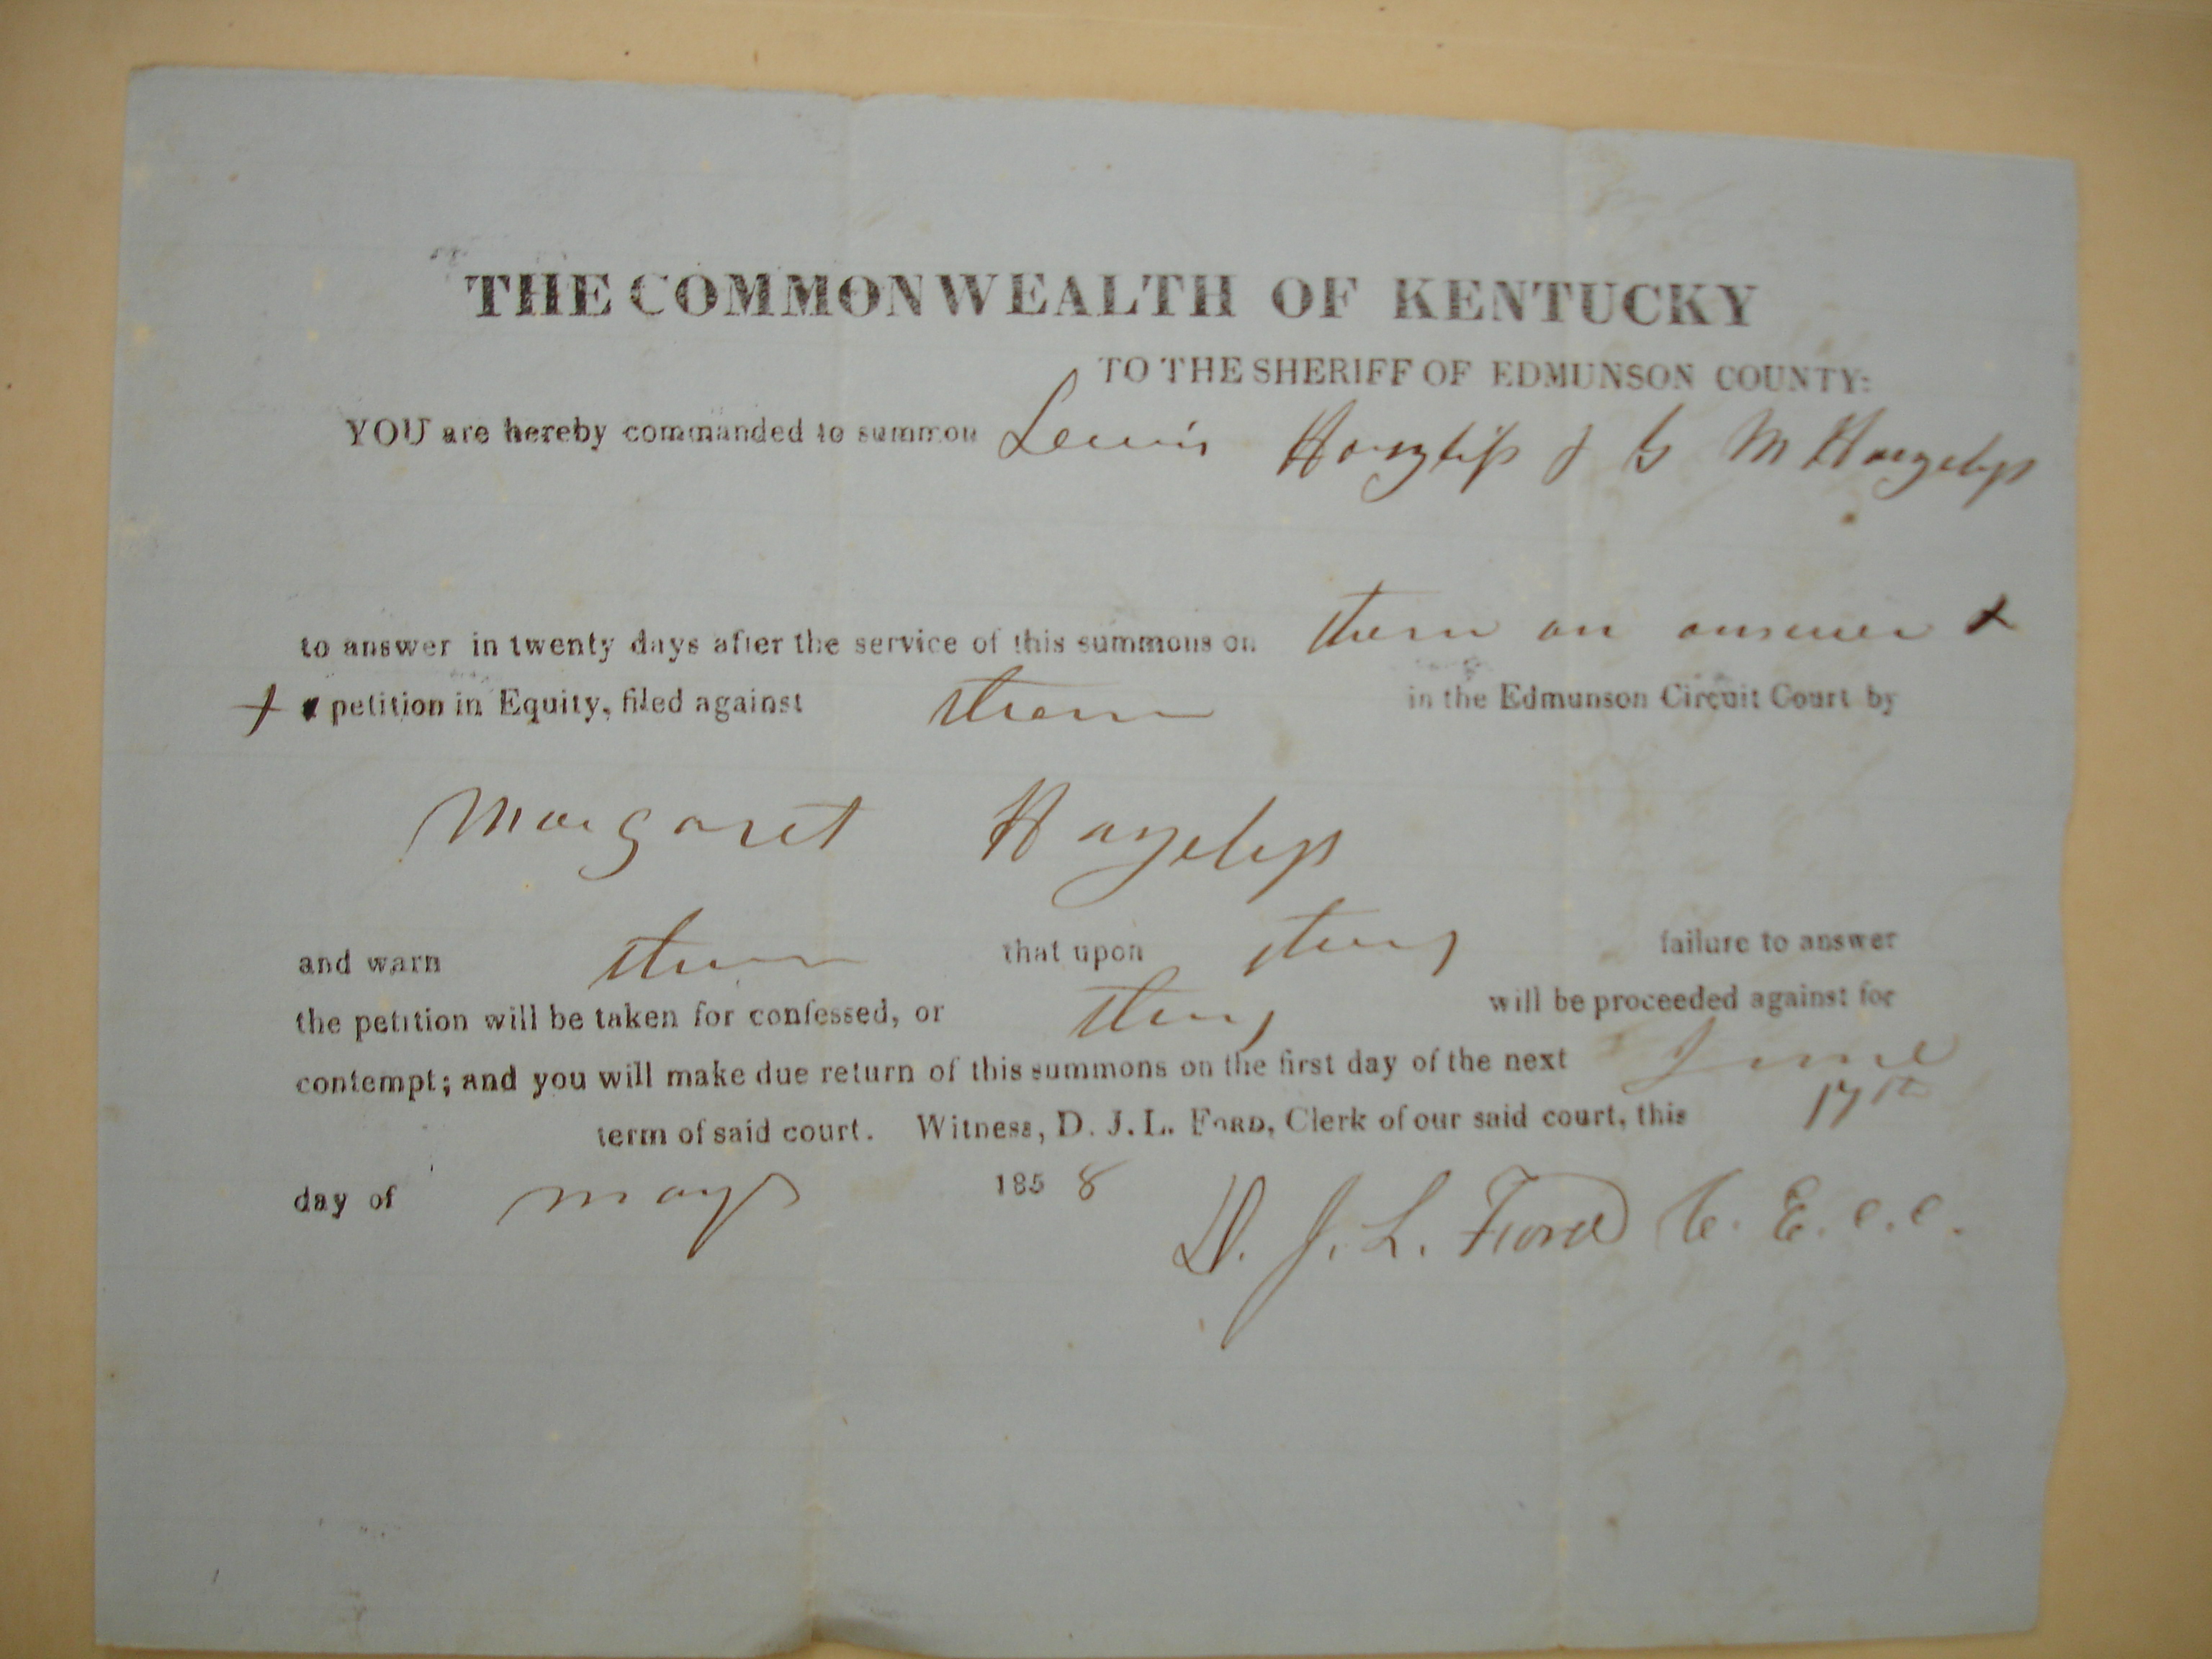 THE COMMONWEALTH OF KENTUCKY
TO THE SHERIFF OF EDMUNSON COUNTY:
YOU are hereby commanded to summon Lewis Hazelip & G M Hazelip
to answer in twenty days after the service of this summons on them an answer &
+ petition in Equity, filed against them in the Edmunson Circuit Court by
Margaret Hazelip
and warn them that upon their failure to answer
the petition will be taken for confessed, or they will be proceeded against for
contempt; and you will make due return of this summons on the first day of the next June
term of said court. Witness, D. J. L. FORD, Clerk of our said court, this 17th
day of may 1858
D. J. L. Ford C. E. C. C.